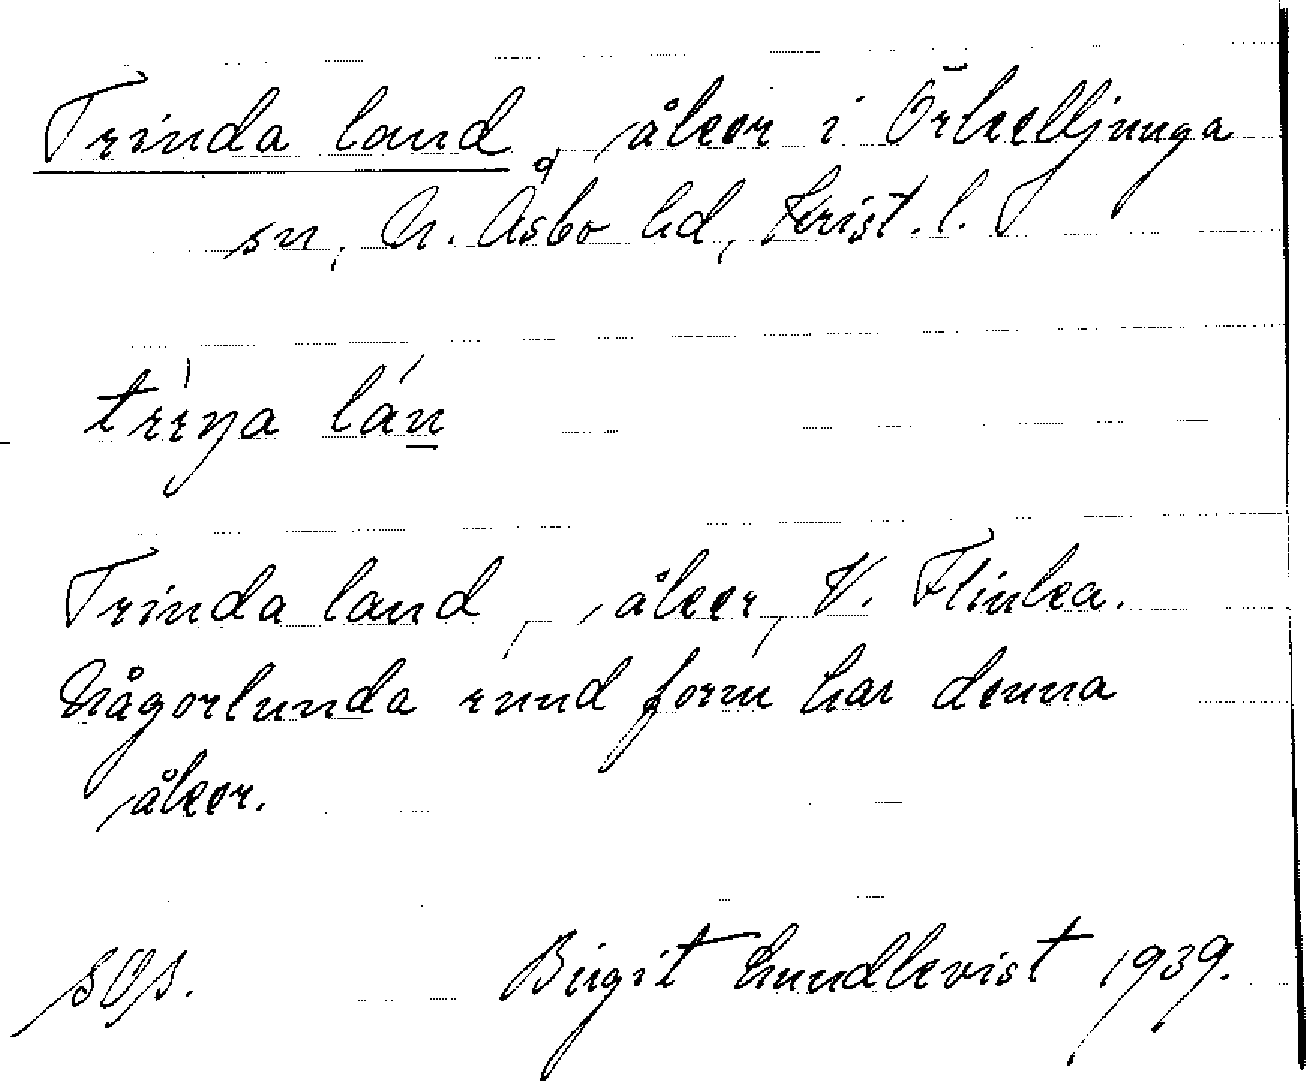 Trinda land, åker i Örkelljunga
sn, N. Åsbo hd, Krist. l.
trı̍ŋa lán̲
Trinda land, åker, V. Flinka.
Någorlunda rund form har denna
åker.
Birgit Lundkvist 1939.